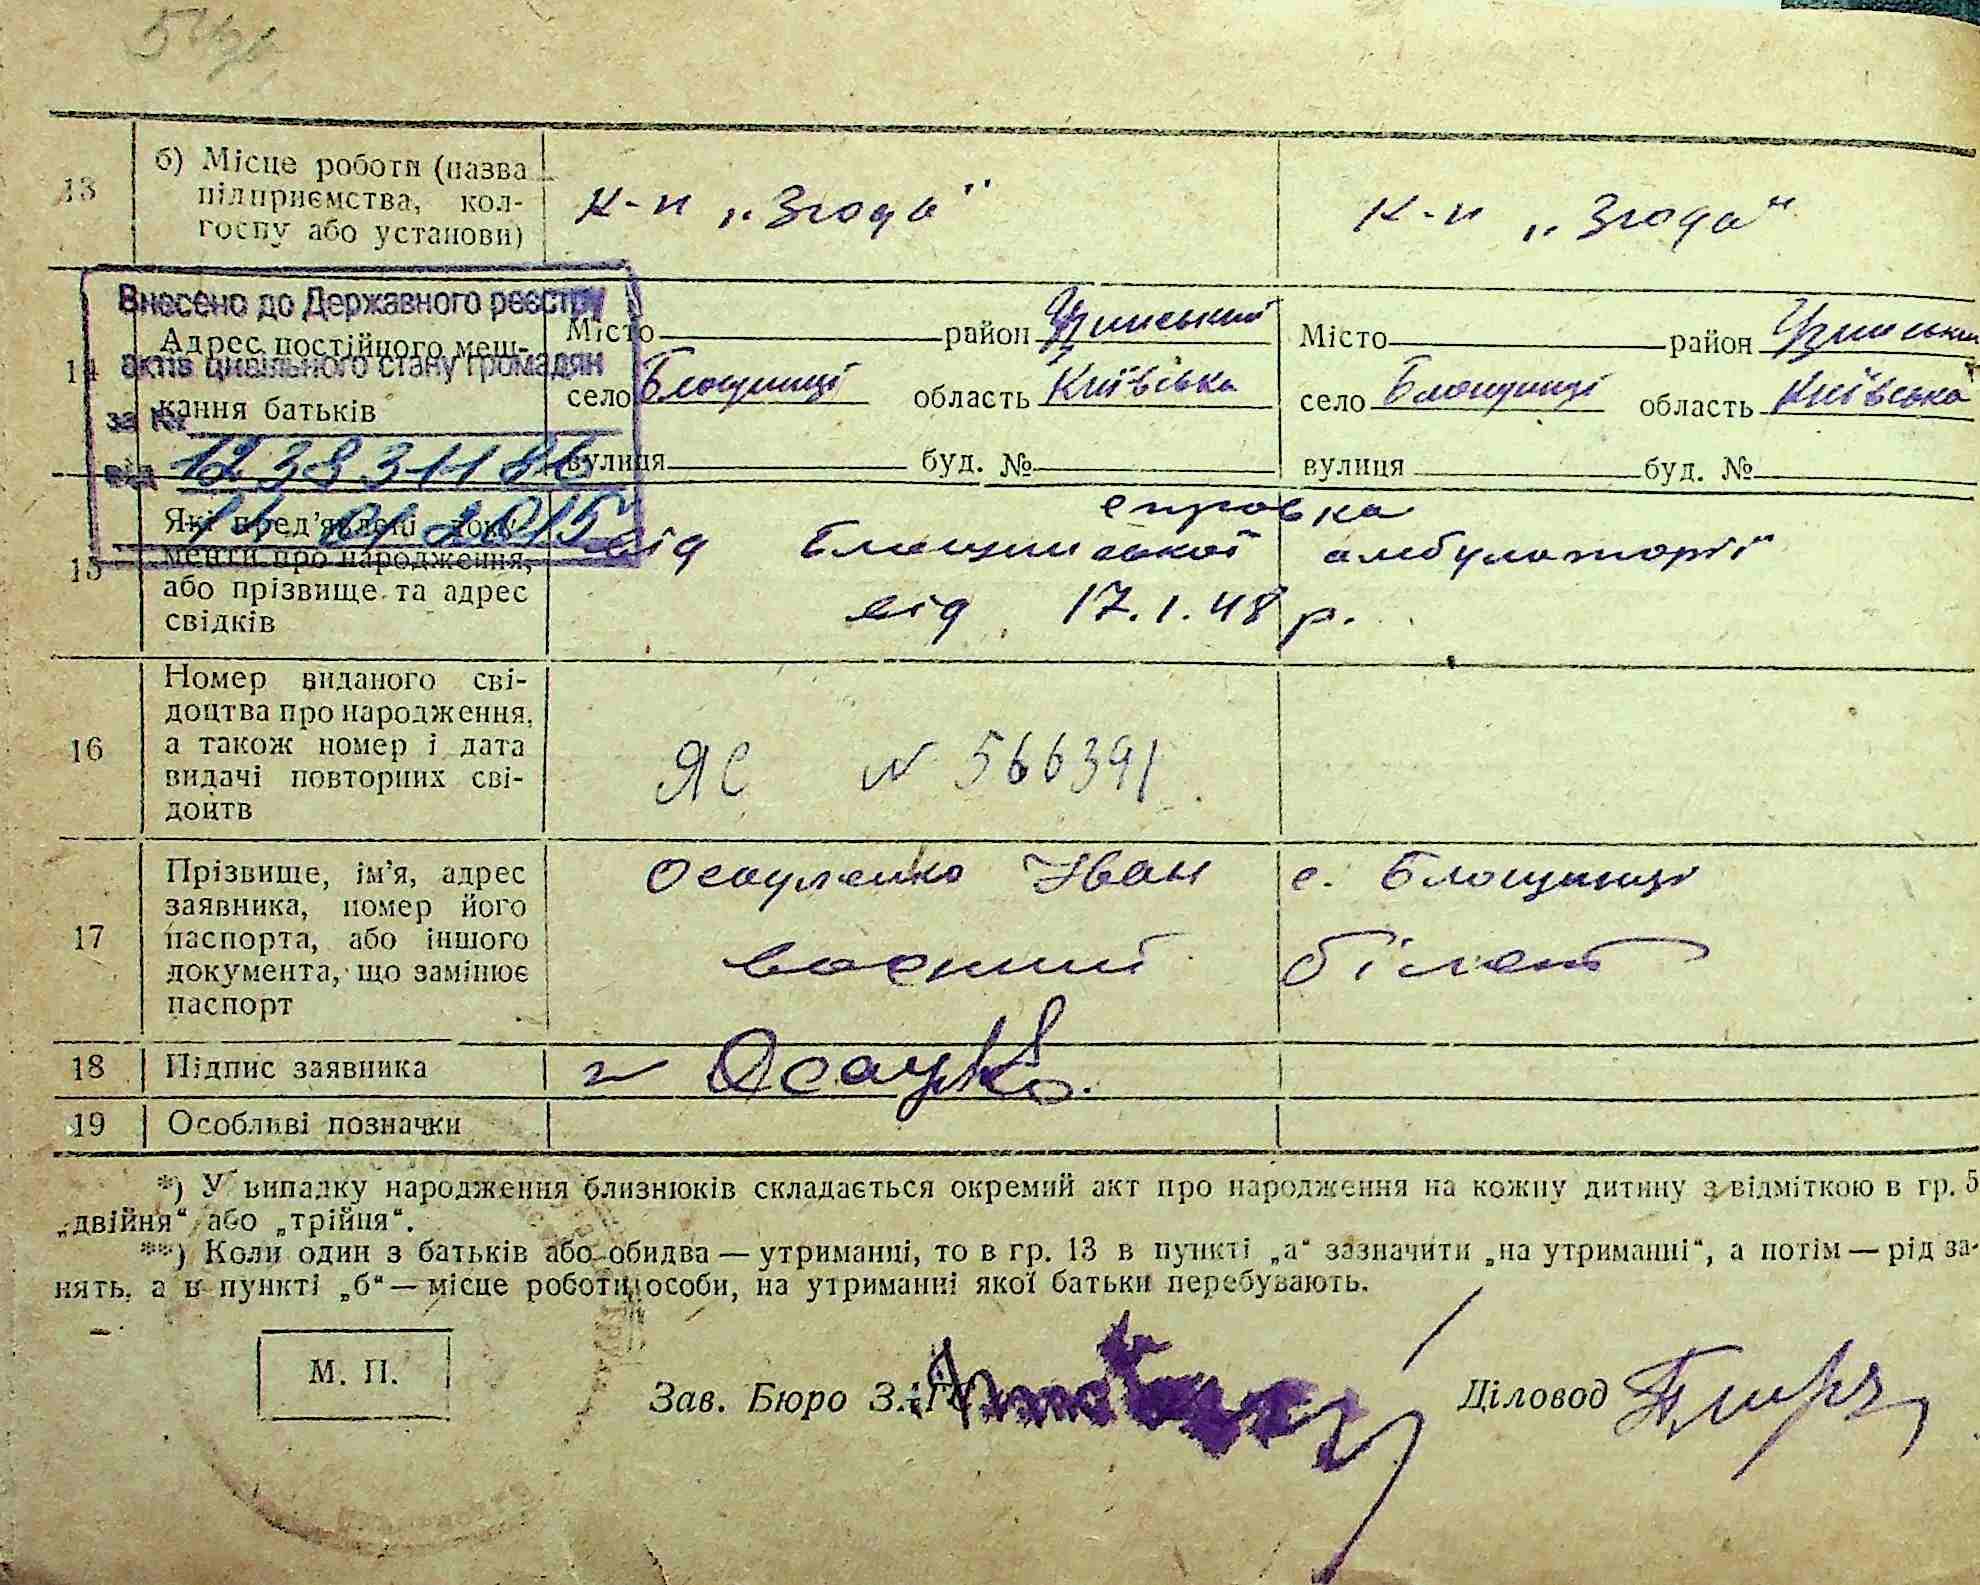 13
б) Місце роботи (назва
підприємства, кол-
госпу або установи)
к-п „Згода"
к-п „Згода"
Внесено до Державного реєстру
актів цивільного стану громадян
за №
від
14
Адрес постійного меш-
кання батьків
Місто район Узинський
село Блощинці область Київська
вулиця буд. №
Місто район Узинський
село Блощинці область Київська
вулиця буд. №
15
Які пред'явлені доку-
менти про народження,
або прізвище та адрес
свідків
справка
від Блощинської амбулаторії
від 17.1.48 р.
16
Номер виданого сві-
доцтва про народження,
а також номер і дата
видачі повторних сві-
доцтв
ЯС № 566391
17
Прізвище, ім'я, адрес
заявника, номер його
паспорта, або іншого
документа, що замінює
паспорт
Осауленко Іван с. Блощинці
воєнний білет
18
Підпис заявника
19
Особливі позначки
*) У випадку народження близнюків складається окремий акт про народження на кожну дитину з відміткою в гр. 5
„двійня" або „трійня".
**) Коли один з батьків або обидва — утриманці, то в гр. 13 в пункті „а" зазначити „на утриманні", а потім — рід за-
нять, а в пункті „б" — місце роботи особи, на утриманні якої батьки перебувають.
М. П.
Зав. Бюро ЗАГС
Діловод